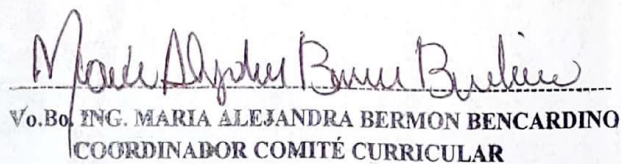 Maria Alejandra Bermon Bencardino
Vo.Bo. ING. MARIA ALEJANDRA BERMON BENCARDINO
COORDINADOR COMITÉ CURRICULAR